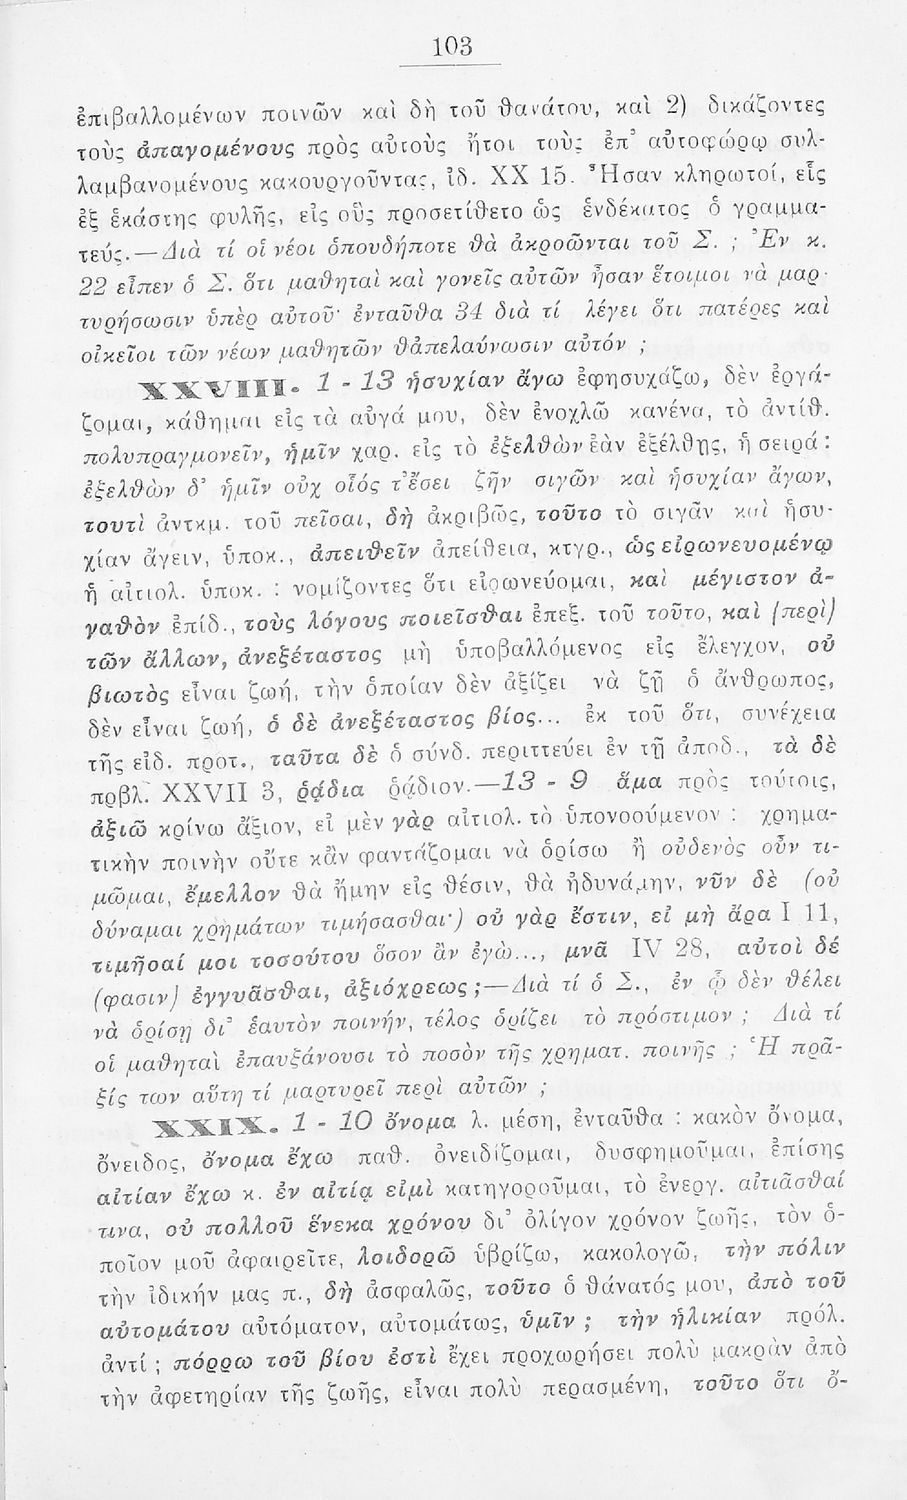 103
ἐπιβαλλομένων ποινῶν καὶ δὴ τοῦ θανάτου, καὶ 2) δικάζοντες
τοὺς ἀπαγομένους πρὸς αὐτοὺς ἤτοι τοὺς ἐπ’ αὐτοφώρῳ συλ-
λαμβανομένους κακουργοῦντας, ἰδ. XX 15. Ἦσαν κληρωτοί, εἷς
ἐξ ἑκάστης φυλῆς, εἰς οὓς προσετίθετο ὡς ἑνδέκατος ὁ γραμμα-
τεύς.—Διὰ τί οἱ νέοι ὁπουδήποτε θὰ ἀκροῶνται τοῦ Σ. ; Ἐν κ.
22 εἶπεν ὁ Σ. ὅτι μαθηταὶ καὶ γονεῖς αὐτῶν ἦσαν ἕτοιμοι νὰ μαρ-
τυρήσωσιν ὑπὲρ αὐτοῦ· ἐνταῦθα 34 διὰ τί λέγει ὅτι πατέρες καὶ
οἰκεῖοι τῶν νέων μαθητῶν θἀπελαύνωσιν αὐτόν ;
XXVIII. 1 - 13 ἡσυχίαν ἄγω ἐφησυχάζω, δὲν ἐργά-
ζομαι, κάθημαι εἰς τὰ αὐγά μου, δὲν ἐνοχλῶ κανένα, τὸ ἀντίθ.
πολυπραγμονεῖν, ἡμῖν χαρ. εἰς τὸ ἐξελθὼν ἐὰν ἐξέλθῃς, ἡ σειρά :
ἐξελθὼν δ’ ἡμῖν οὐχ οἷός τ’ ἔσει ζῆν σιγῶν καὶ ἡσυχίαν ἄγων,
τουτὶ ἀντκμ. τοῦ πεῖσαι, δὴ ἀκριβῶς, τοῦτο τὸ σιγᾶν καὶ ἡσυ-
χίαν ἄγειν, ὑποκ., ἀπειθεῖν ἀπείθεια, κτγρ., ὡς εἰρωνευομένῳ
ἡ αἰτιολ. ὑποκ. : νομίζοντες ὅτι εἰρωνεύομαι, καὶ μέγιστον ἀ-
γαθὸν ἐπίδ., τοὺς λόγους ποιεῖσθαι ἐπεξ. τοῦ τοῦτο, καὶ (περὶ)
τῶν ἄλλων, ἀνεξέταστος μὴ ὑποβαλλόμενος εἰς ἔλεγχον, οὐ
βιωτὸς εἶναι ζωή, τὴν ὁποίαν δὲν ἀξίζει νὰ ζῇ ὁ ἄνθρωπος,
δὲν εἶναι ζωή, ὁ δὲ ἀνεξέταστος βίος... ἐκ τοῦ ὅτι, συνέχεια
τῆς εἰδ. προτ., ταῦτα δὲ ὁ σύνδ. περιττεύει ἐν τῇ ἀποδ., τὰ δὲ
πρβλ. XXVII 3, ῥᾴδια ῥᾴδιον.—13 - 9 ἅμα πρὸς τούτοις,
ἀξιῶ κρίνω ἄξιον, εἰ μὲν γὰρ αἰτιολ. τὸ ὑπονοούμενον : χρημα-
τικὴν ποινὴν οὔτε κἂν φαντάζομαι νὰ ὁρίσω ἢ οὐδενὸς οὖν τι-
μῶμαι, ἔμελλον θὰ ἤμην εἰς θέσιν, θὰ ἠδυνάμην, νῦν δὲ (οὐ
δύναμαι χρημάτων τιμήσασθαι·) οὐ γὰρ ἔστιν, εἰ μὴ ἄρα I 11,
τιμῆσαί μοι τοσούτου ὅσον ἂν ἐγὼ..., μνᾶ IV 28, αὐτοὶ δέ
(φασιν) ἐγγυᾶσθαι, ἀξιόχρεως ;—Διὰ τί ὁ Σ., ἐν ᾧ δὲν θέλει
νὰ ὁρίσῃ δι’ ἑαυτὸν ποινήν, τέλος ὁρίζει τὸ πρόστιμον ; Διὰ τί
οἱ μαθηταὶ ἐπαυξάνουσι τὸ ποσὸν τῆς χρηματ. ποινῆς ; Ἡ πρᾶ-
ξίς των αὕτη τί μαρτυρεῖ περὶ αὐτῶν ;
XXIX. 1 - 10 ὄνομα λ. μέση, ἐνταῦθα : κακὸν ὄνομα,
ὄνειδος, ὄνομα ἔχω παθ. ὀνειδίζομαι, δυσφημοῦμαι, ἐπίσης
αἰτίαν ἔχω κ. ἐν αἰτίᾳ εἰμὶ κατηγοροῦμαι, τὸ ἐνεργ. αἰτιᾶσθαί
τινα, οὐ πολλοῦ ἕνεκα χρόνου δι’ ὀλίγον χρόνον ζωῆς, τὸν ὁ-
ποῖον μοῦ ἀφαιρεῖτε, λοιδορῶ ὑβρίζω, κακολογῶ, τὴν πόλιν
τὴν ἰδικήν μας π., δὴ ἀσφαλῶς, τοῦτο ὁ θάνατός μου, ἀπὸ τοῦ
αὐτομάτου αὐτόματον, αὐτομάτως, ὑμῖν ; τὴν ἡλικίαν πρόλ.
ἀντί ; πόρρω τοῦ βίου ἐστὶ ἔχει προχωρήσει πολὺ μακρὰν ἀπὸ
τὴν ἀφετηρίαν τῆς ζωῆς, εἶναι πολὺ περασμένη, τοῦτο ὅτι ὅ-